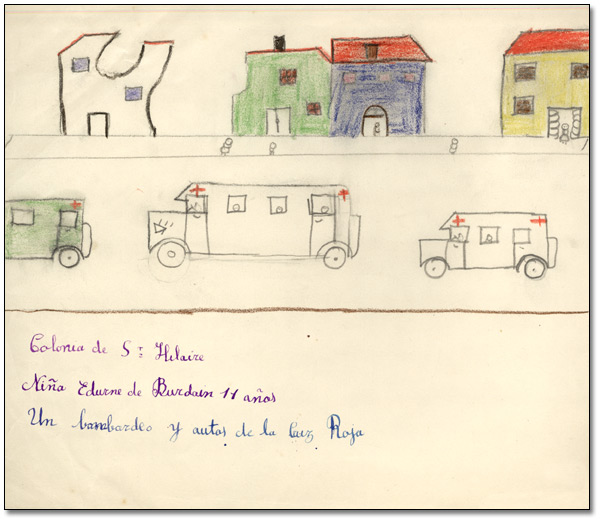 Colonia de Sт Hilaire
Niña Edurne de Burdain 11 años
Un bambardeo y autos de la Cuz Roja